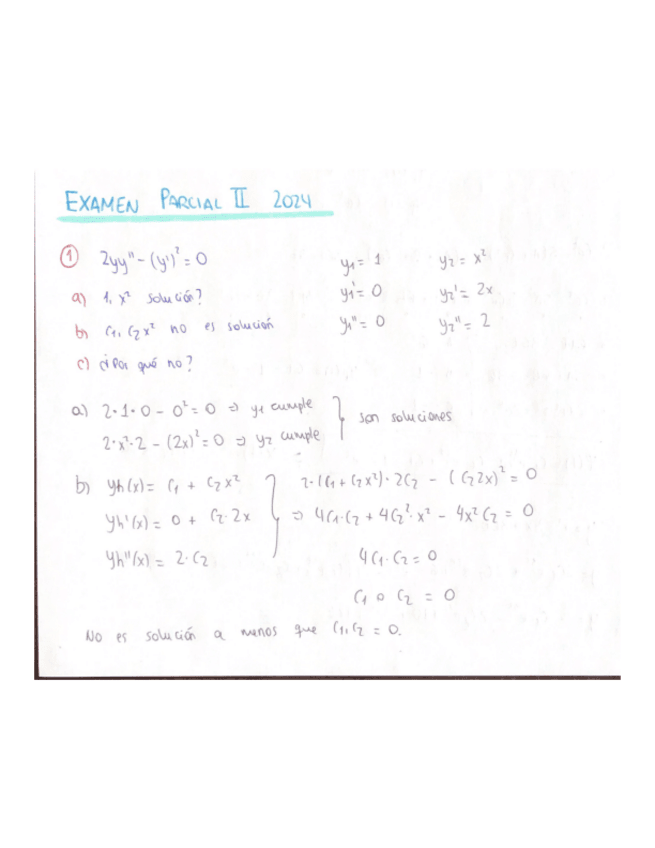 EXAMEN PARCIAL II 2024
① 2yy'' - (y')² = 0
a) 1, x² solución?
b) C₁, C₂x² no es solución
c) ¿Por qué no?
y₁ = 1
y₁' = 0
y₁'' = 0
y₂ = x²
y₂' = 2x
y₂'' = 2
a) 2·1·0 - 0² = 0 ⇒ y₁ cumple
2·x²·2 - (2x)² = 0 ⇒ y₂ cumple
son soluciones
b) yh(x) = C₁ + C₂x²
yh'(x) = 0 + C₂·2x
yh''(x) = 2·C₂
2·(C₁ + C₂x²)·2C₂ - (C₂2x)² = 0
⇒ 4C₁·C₂ + 4C₂²·x² - 4x²C₂ = 0
4C₁·C₂ = 0
C₁ o C₂ = 0
No es solución a menos que C₁,C₂ = 0.